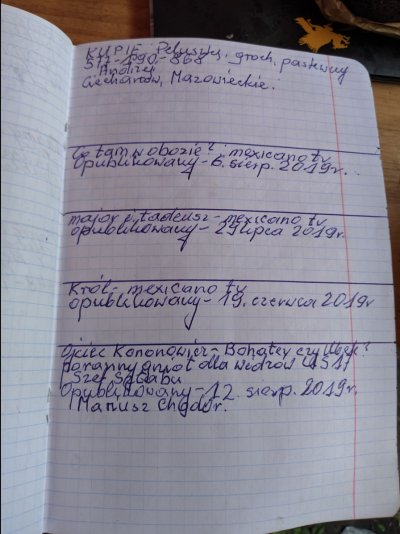 KUPIE Peluszkę, groch, pastewny
511-190-868
Andrzej
Ciechanów, Mazowieckie.
Co tam w obozie? - mexicano tv
Opublikowany - 6. sierp. 2019r.
major i tadeusz - mexicano tv
opublikowany - 29 lipca 2019r.
Król - mexicano tv
opublikowany - 19. czerwca 2019r
Ojciec Kononowicz - Bohater czy
poranny dla
Szef Sztabu
Opublikowany - 12. sierp. 2019r.
Mariusz Chodór.